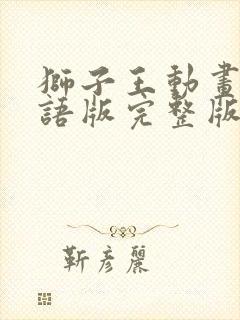 獅子王動畫
語版完整版
靳彥麗